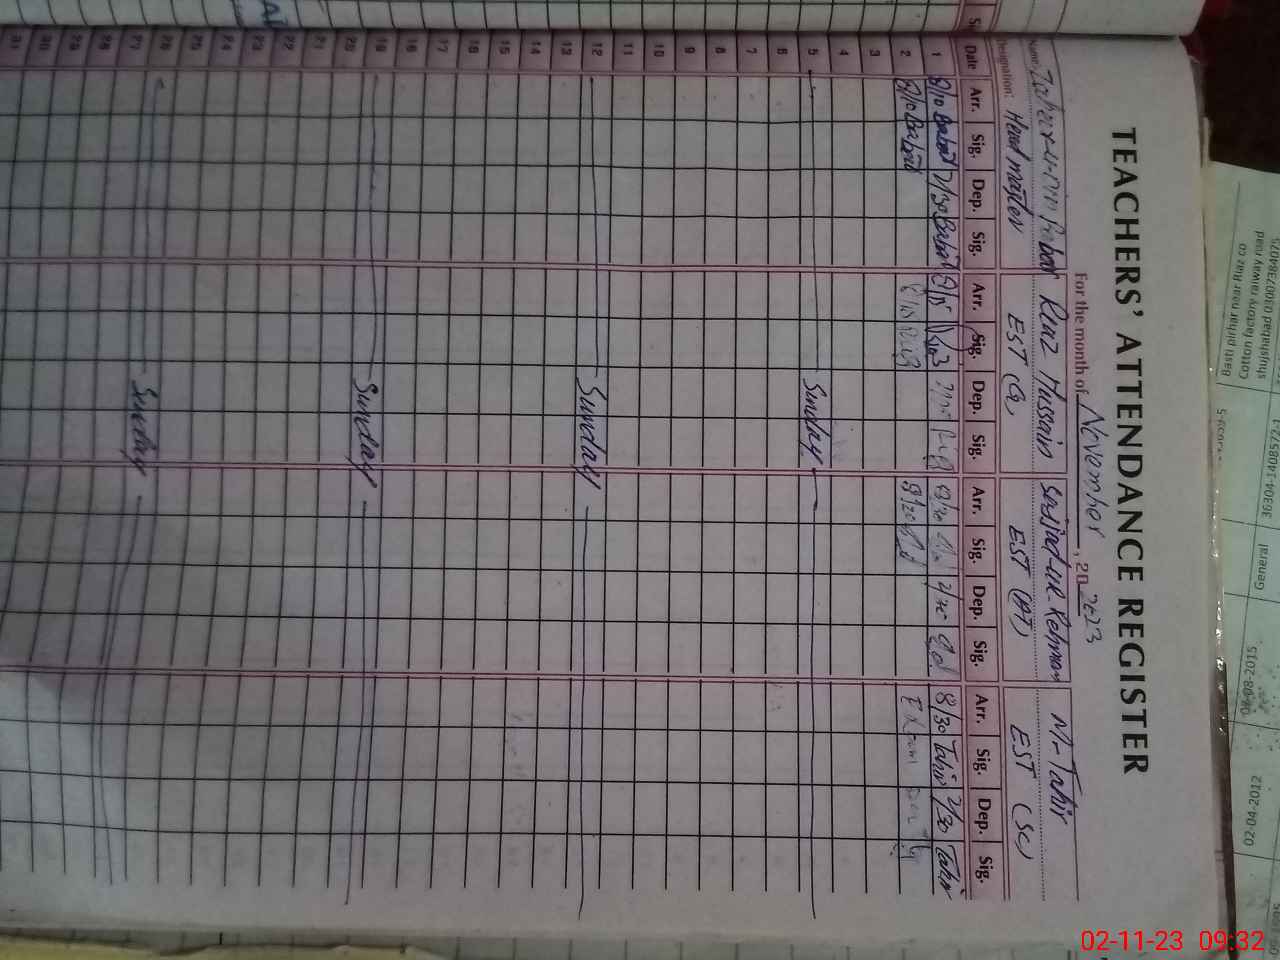 TEACHERS' ATTENDANCE REGISTER
For the month of November, 20 2023
Name: Zaheer-ud-Din Babar Riaz Hussain Sajjad-ur-Rehman M-Tahir
Designation: Head master EST (A) EST (AT) EST (SC)
Date Arr. Sig. Dep. Sig. Arr. Sig. Dep. Sig. Arr. Sig. Dep. Sig. Arr. Sig. Dep. Sig.
1 8/10 Babar 7/30 Babar 8/15 8/30 2/30 8/30 Tahir 2/30 Tahir
2 8/10 Babar 8/15 8/20
3
4
5 Sunday
6
7
8
9
10
11
12 Sunday
13
14
15
16
17
18
19 Sunday
20
21
22
23
24
25
26 Sunday
27
28
29
30
31
Basti pirdthar near thar c o
Cotton factory raiway road
General
06-08-2015
02-04-2012
02-11-23 09:32